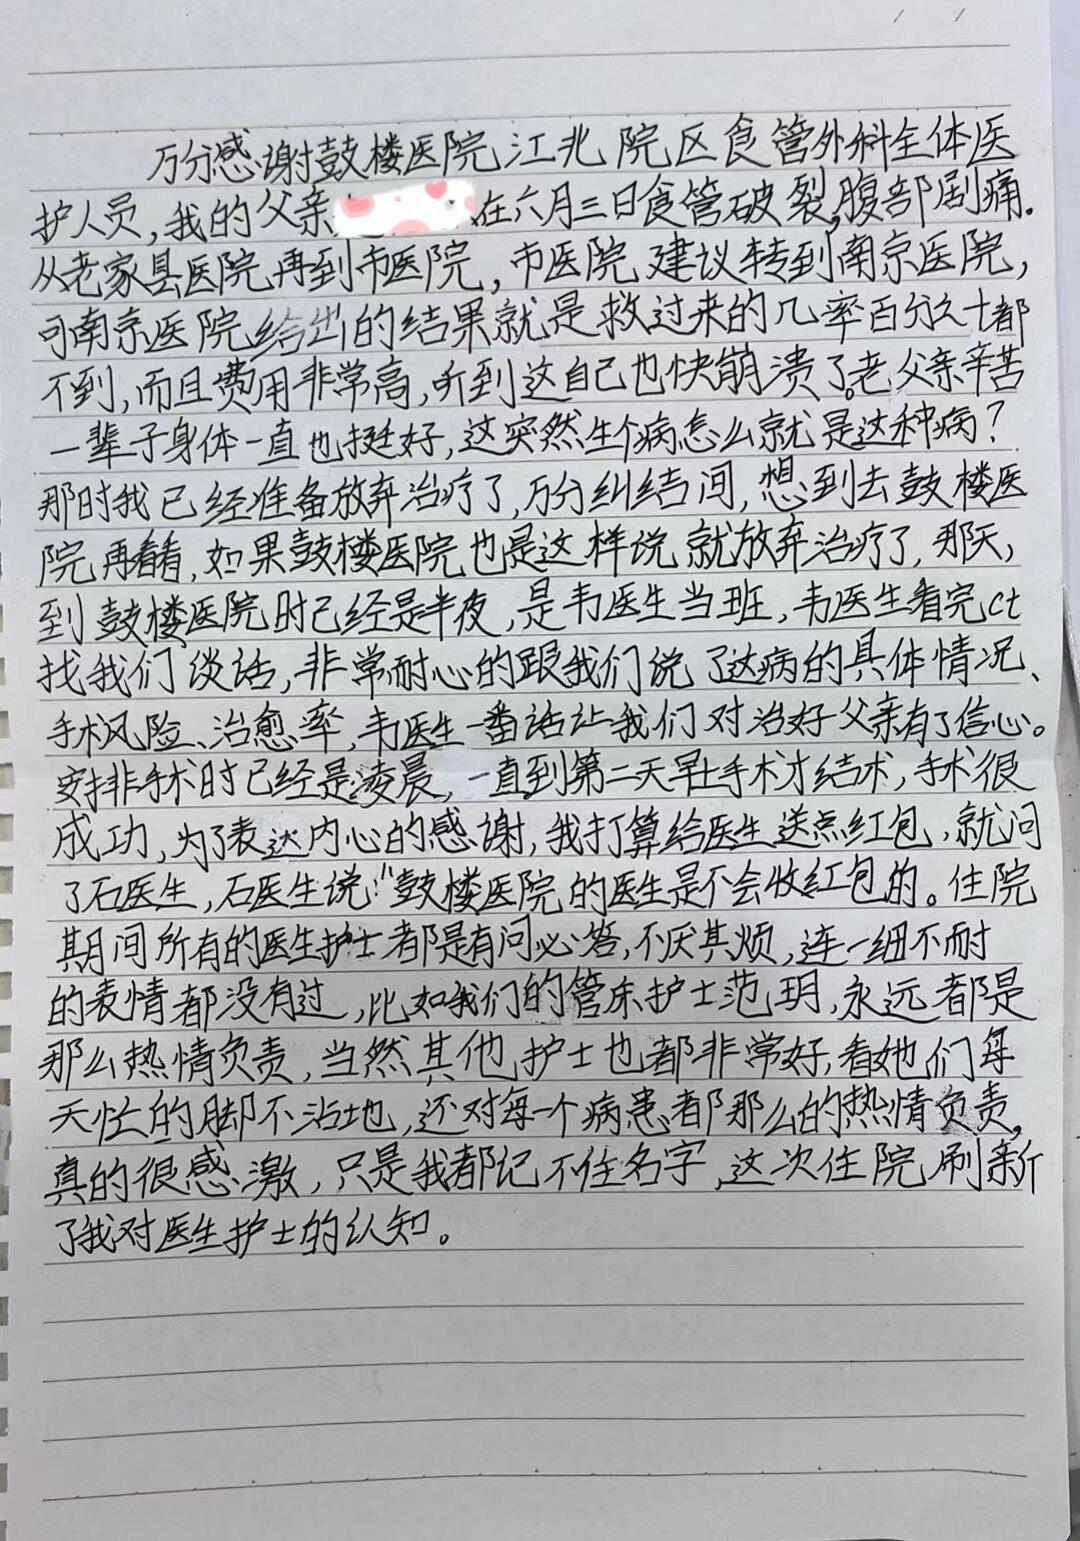 万分感谢鼓楼医院江北院区食管外科全体医
护人员，我的父亲在六月三日食管破裂，腹部剧痛.
从老家县医院再到市医院，市医院建议转到南京医院，
可南京医院给出的结果就是救过来的几率百分之十都
不到，而且费用非常高，听到这自己也快崩溃了。老父亲辛苦
一辈子身体一直也挺好，这突然生个病怎么就是这种病？
那时我已经准备放弃治疗了，万分纠结间，想到去鼓楼医
院再看看，如果鼓楼医院也是这样说就放弃治疗了，那天，
到鼓楼医院时已经是半夜，是韦医生当班，韦医生看完ct
找我们谈话，非常耐心的跟我们说了这病的具体情况、
手术风险、治愈率，韦医生一番话让我们对治好父亲有了信心。
安排手术时已经是凌晨，一直到第二天早上手术才结术，手术很
成功，为了表达内心的感谢，我打算给医生送点红包，就问
了石医生，石医生说：“鼓楼医院的医生是不会收红包的。住院
期间所有的医生护士都是有问必答，不厌其烦，连一细不耐
的表情都没有过，比如我们的管床护士范玥，永远都是
那么热情负责，当然其他护士也都非常好，看她们每
天忙的脚不沾地，还对每一个病患者都那么的热情负责，
真的很感激，只是我都记不住名字，这次住院刷新
了我对医生护士的认知。